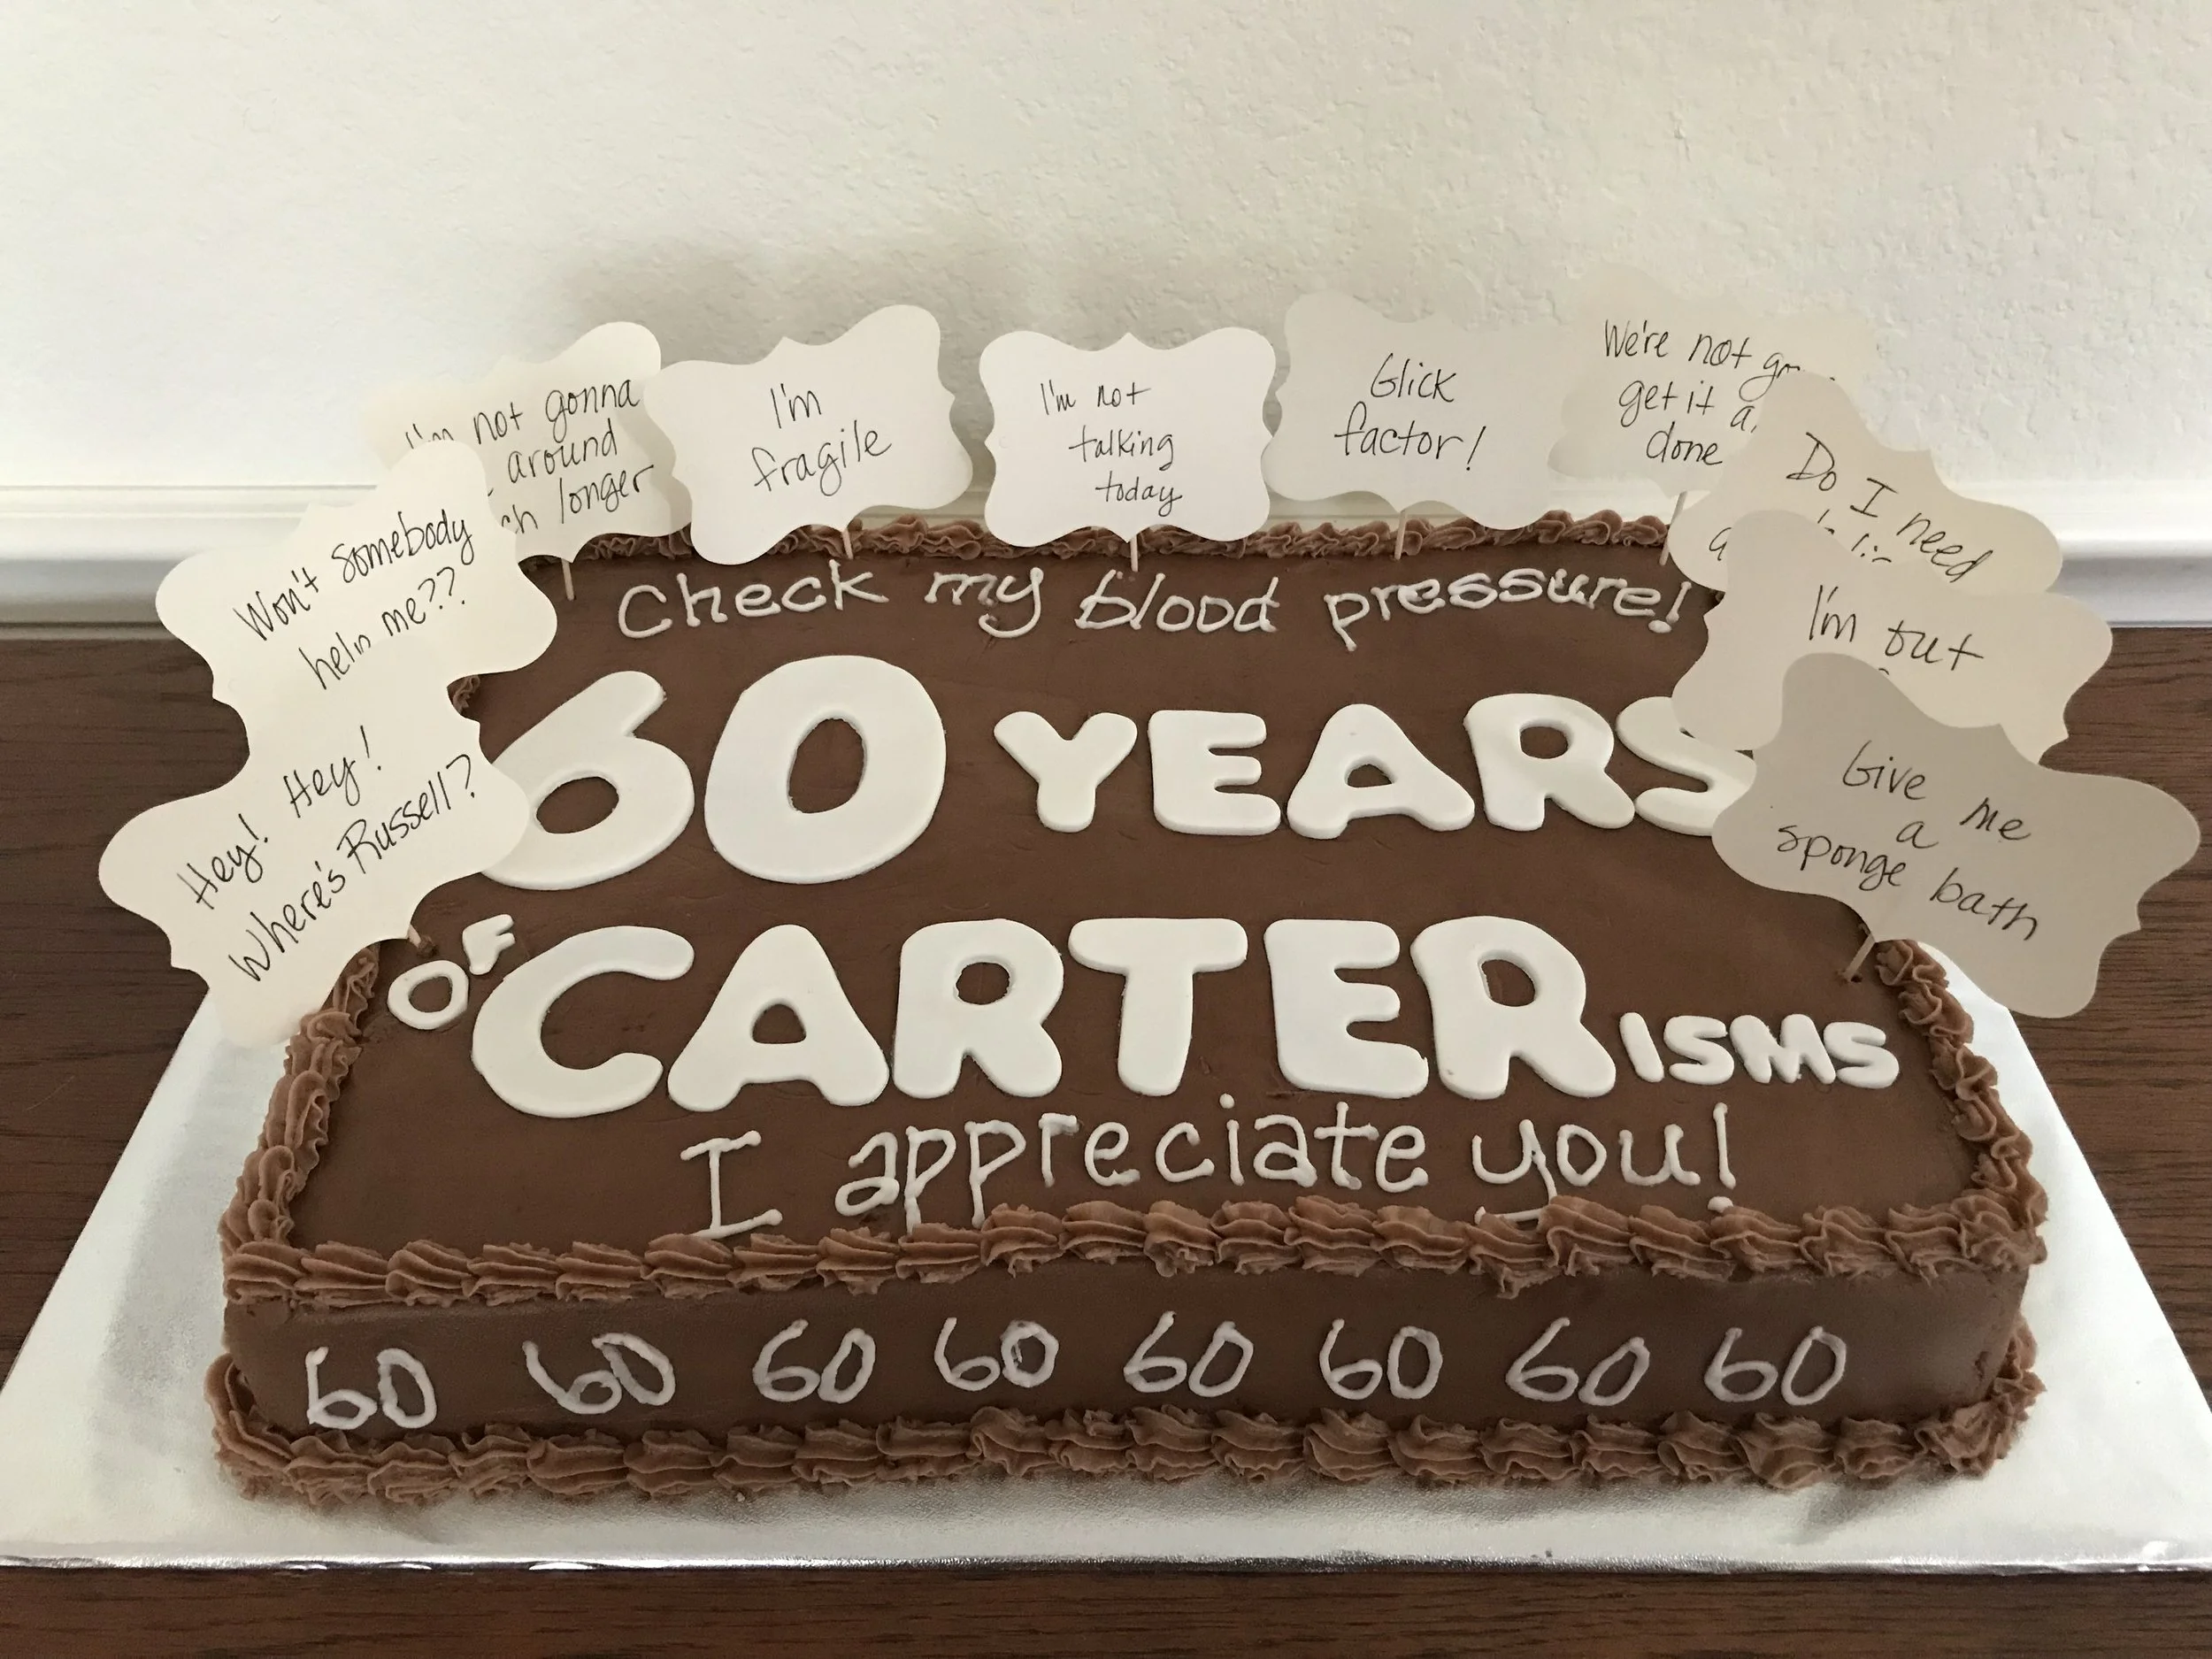 I'm not gonna
around
longer
I'm
fragile
I'm not
talking
today
Glick
factor!
We're not
get it
done
Do I need
a
I'm out
Give me
a
sponge bath
Won't somebody
help me??
Hey! Hey!
Where's Russell?
Check my blood pressure!
60 YEARS
OF CARTERISMS
I appreciate you!
60 60 60 60 60 60 60 60